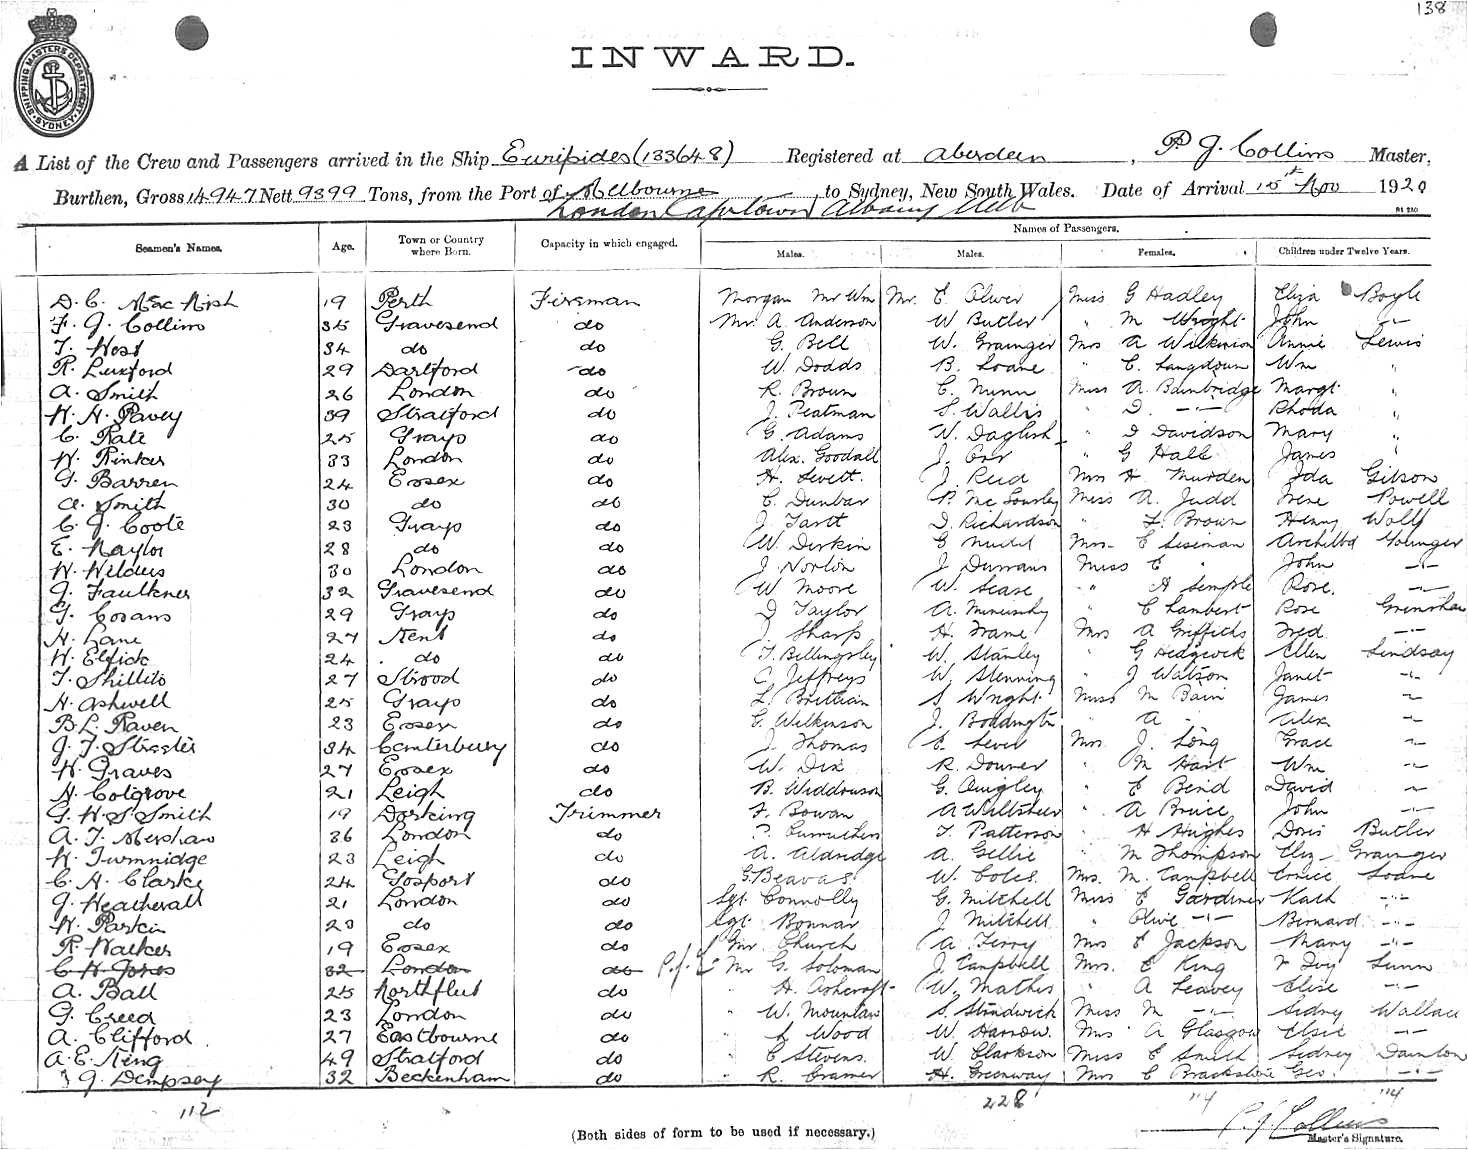 138
SHIPPING MASTERS DEPARTMENT SYDNEY
INWARD.
A List of the Crew and Passengers arrived in the Ship Euripides (133648) Registered at Aberdeen, P J Collins Master,
Burthen, Gross 14947 Nett 9399 Tons, from the Port of Melbourne to Sydney, New South Wales. Date of Arrival 15th Nov 1920
London Capetown Albany Melb
Names of Passengers.
Seamen's Names. Age. Town or Country where Born. Capacity in which engaged. Males. Males. Females. Children under Twelve Years.
D. C. Mac Nish 19 Perth Fireman Morgan Mr Wm Mr. E. Oliver Miss G Hadley Eliza Boyle
F. J. Collins 35 Gravesend do Mr. A. Anderson W Butler " M Wright John -"-
T. Host 34 do do G. Bell W. Grainger Mrs A Wilkinson Annie Lewis
R. Luxford 29 Dartford do W. Dodds B. Loane " E. Langdown Wm "
A. Smith 26 London do R. Brown C. Nunn Miss A. Bainbridge Margt "
W. H. Pavey 39 Stratford do J. Peatman S. Wallis " D. -"- Rhoda "
C. Pale 25 Grays do G. Adams N. Daglish " D Davidson Mary "
W. Rinker 33 London do Alex. Goodall J. Orr " G Hall James "
G. Barren 24 Essex do H. Levett. J. Reid Mrs H Murden Ida Gibson
A. Smith 30 do do E. Dunbar Miss A. Judd Irene Powell
C. J. Coote 23 Grays do J. Tartt D. Richardson " L. Brown Henry Wolff
E. Naylor 28 do do W. Dirkin Mrs. E Archibd Younger
W. Wilders 30 London do J. Norton J Durrans Miss E " John -"-
J. Faulkner 32 Gravesend do W Moore W. Sease " A Semple Rose. -"-
G. Cosans 29 Grays do J Taylor " E Lambert Rose Grimshaw
H. Lane 27 Kent do J Sharp H. Frame Mrs A Griffiths Fred -"-
W. Elfick 24 do do T. Billingsley W. Stanley " G Hedgwick Ellen Lindsay
T. Skillets 27 Strood do C Jeffreys W. Stenning " J Watson Janet -"-
H. Ashwell 25 Grays do L. Brittian S Wright Miss M Bain James "
B. L. Raven 23 Essex do G. Wilkinson J. Boddington " A " Alex "
J. T. 34 Canterbury do J. Thomas E. Lever Mrs. J. Long Grace "
W. Graves 27 Essex do W. Dix R. Downer " M Hart Wm "
H. Colgrove 21 Leigh do B. Widdowson G. Quigley " E Bend David "
G. H. S. Smith 19 Dorking Trimmer F. Bowan A Wiltshier " A Bruce John -"-
A. T. Mershaw 36 London do T. Patterson " H Hughes Doris Butler
W. Turmnidge 23 Leigh do A. Aldridge A. Gellie " M Thompson Eliz Grainger
C. H. Clarke 24 Gosport do G. Beavas W. Coles. Mrs. M. Campbell Eunice Loane
J. Heatherall 21 London do Sgt Connolly G. Mitchell Miss E Gardiner Kath -"-
W. Parkin 23 do do Sgt Bonnar J Mitchell " Olive -"- Bernard -"-
R. Walker 19 Essex do Mr Church A Terry Mrs E Jackson Mary -"-
C. H. Jones 32 London do P.J.C. Mr G. Soloman J. Campbell Mrs. E King Ivy Lunn
A. Ball 25 Northfleet do " H. Ashcroft W. Mathis " A Leavey Elsie -"-
G. Creed 23 London do " W. Mountain S. Strudwick Miss M -"- Sidney Wallace
A. Clifford 27 Eastbourne do " L Wood W Harrow. Mrs A Glasgow Elsie -"-
A. E. King 49 Stratford do " E Stevens. W. Clarkson Miss E Smith Sidney Dainton
J. G. Dempsey 32 Beckenham do " R. Cramer H. Greenway Mrs E Brackstone Geo. -"-
112 228 114 114
(Both sides of form to be used if necessary.)
P. J. Collins
Master's Signature.